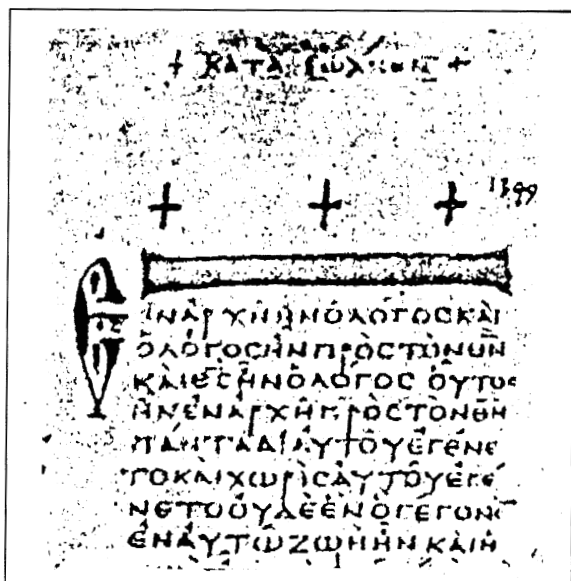 + ΚΑΤΑ ΙΩΑΝΝΗΝ +
1399
ΕΝΑΡΧΗΗΝΟΛΟΓΟCΚΑΙ
ΟΛΟΓΟCΗΝΠΡΟCΤΟΝΘΝ
ΚΑΙΘCΗΝΟΛΟΓΟC ΟΥΤΟC
ΗΝΕΝΑΡΧΗΠΡΟCΤΟΝΘΝ
ΠΑΝΤΑΔΙΑΥΤΟΥΕΓΕΝΕ
ΤΟΚΑΙΧΩΡΙCΑΥΤΟΥΕΓΕ
ΝΕΤΟΟΥΔΕΕΝΟΓΕΓΟΝΕ
ΕΝΑΥΤΩΖΩΗΗΝ ΚΑΙΗ